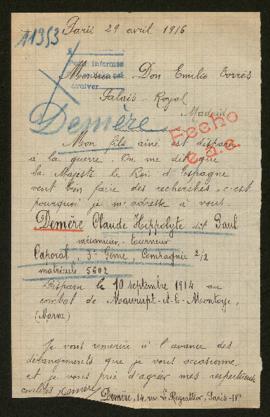 Paris 29 avril 1916
A1353
Monsieur Don Emilio Torres
Palais Royal
Madrid
Demère
Fecho
Mon fils aîné est disparu
à la guerre. On me dit que
Sa Majesté le Roi d'Espagne
veut bien faire des recherches, c'est
pourquoi je m'adresse à vous.
Demère Claude Hippolyte dit Paul
mécanicien, tourneur
Caporal, 3e Génie, Compagnie 2/2
matricule 5602
Disparu le 10 septembre 1914 au
combat de Maurupt-et-le-Montoy
(Marne)
Je vous remercie à l'avance des
dérangements que je vous occasionne,
et je vous prie d'agréer mes respectueuses
Demère, 14 rue Le Regrattier, Paris